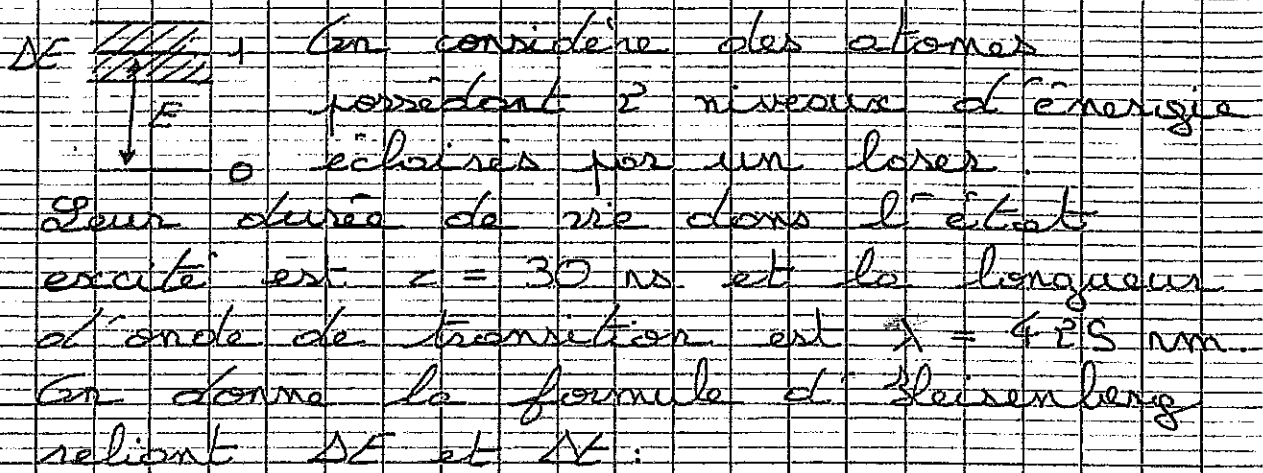 ΔE 1 On considère des atomes
E possédant 2 niveaux d'énergie
0 éclairés par un laser.
Leur durée de vie dans l'état
excité est τ = 30 ns et la longueur
d'onde de transition est λ = 425 nm.
On donne la formule d'Heisenberg
reliant ΔE et Δt :